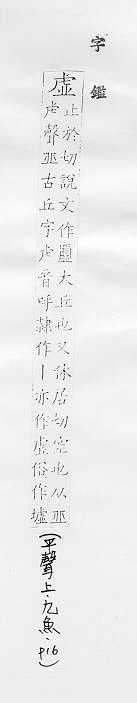 字鑑
虛
止於切說文作大丘也又休居切空也从丠
虍聲丠古丘字虍音呼隸作丨亦作虚俗作墟
(平聲上·九魚·P16)